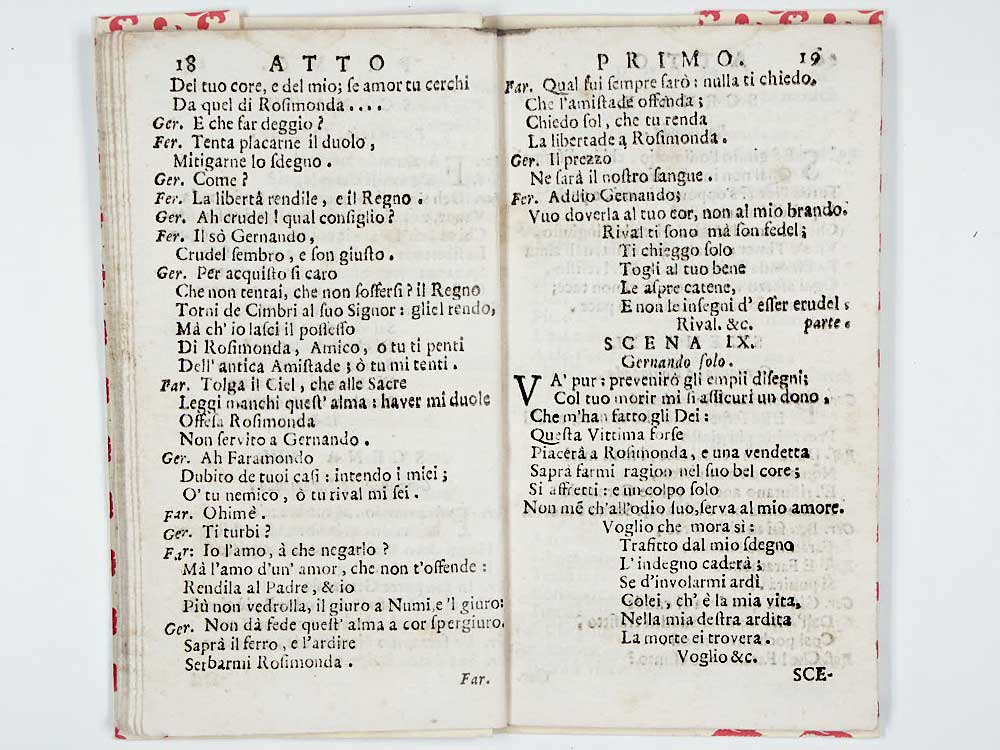 18 ATTO
Del tuo core, e del mio; se amor tu cerchi
Da quel di Rosimonda....
Ger. E che far deggio?
Fer. Tenta placarne il duolo,
Mitigarne lo sdegno.
Ger. Come?
Fer. La libertà rendile, e il Regno.
Ger. Ah crudel! qual consiglio?
Fer. Il sò Gernando,
Crudel sembro, e son giusto.
Ger. Per acquisto si caro
Che non tentai, che non soffersi? il Regno
Torni de Cimbri al suo Signor: gliel rendo,
Mà ch' io lasci il possesso
Di Rosimonda, Amico, o tu ti penti
Dell' antica Amistade; ò tu mi tenti.
Far. Tolga il Ciel, che alle Sacre
Leggi manchi quest' alma: haver mi duole
Offesa Rosimonda
Non servito a Gernando.
Ger. Ah Faramondo
Dubito de tuoi casi: intendo i miei;
O' tu nemico, ò tu rival mi sei.
Far. Ohimè.
Ger. Ti turbi?
Far: Io l'amo, à che negarlo?
Mà l'amo d'un' amor, che non t'offende:
Rendila al Padre, & io
Più non vedrolla, il giuro a Numi, e 'l giuro:
Ger. Non dà fede quest' alma a cor spergiuro.
Saprà il ferro, e l'ardire
Serbarmi Rosimonda.
Far.
PRIMO. 19
Far. Qual fui sempre sarò: nulla ti chiedo.
Che l'amistade offenda;
Chiedo sol, che tu renda
La libertade a Rosimonda.
Ger. Il prezzo
Ne sarà il nostro sangue.
Fer. Addio Gernando;
Vuo doverla al tuo cor, non al mio brando.
Rival ti sono mà son fedel;
Ti chieggo solo
Togli al tuo bene
Le aspre catene,
E non le insegni d' esser crudel;
Rival. &c. parte.
SCENA IX.
Gernando solo.
VA' pur: prevenirò gli empii disegni;
Col tuo morir mi si assicuri un dono,
Che m'han fatto gli Dei:
Questa Vittima forse
Piacerà a Rosimonda, e una vendetta
Saprà farmi ragion nel suo bel core;
Si affretti: e un colpo solo
Non mẽ ch'all'odio suo, serva al mio amore.
Voglio che mora si:
Trafitto dal mio sdegno
L' indegno caderà;
Se d'involarmi ardì
Colei, ch' è la mia vita,
Nella mia destra ardita
La morte ei trovera.
Voglio &c.
SCE-